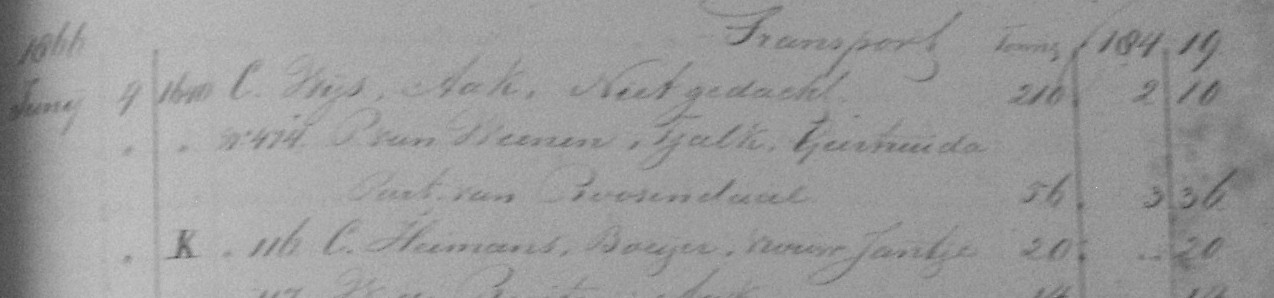 1866 Transport Tonns 184.19
Junij 9 C. Wijs, Aak, Niet gedacht 210 2 10
" " N° 474 P. van Weenen, Tjalk, Geertruida
Part. van Roosendaal 56 3 36
" K " 116 C. Heimans, Boeijer, vrouw Jantje 20 " 20
117 Aak 19